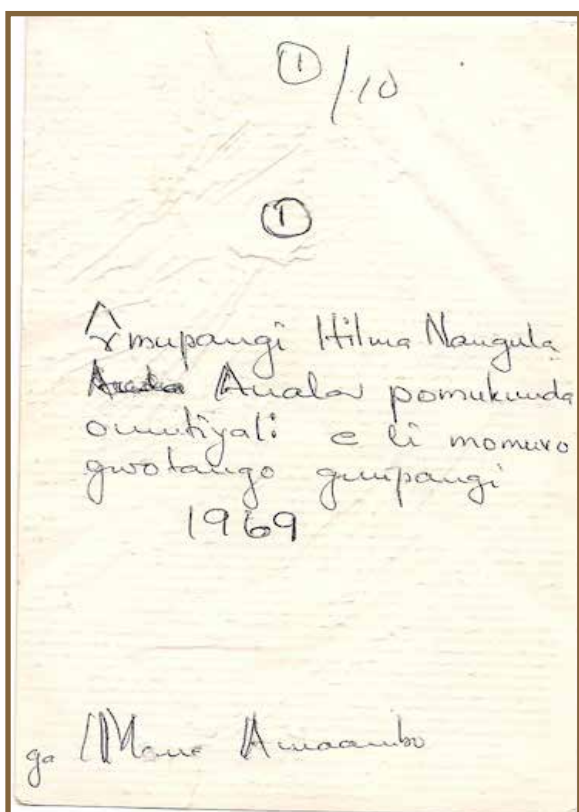 ① /10
①
Omupangi Hilma Nangula
Anala pomukunda
omutiyali e li momuvo
gwotango guupangi
1969
ga Mme Amaambo